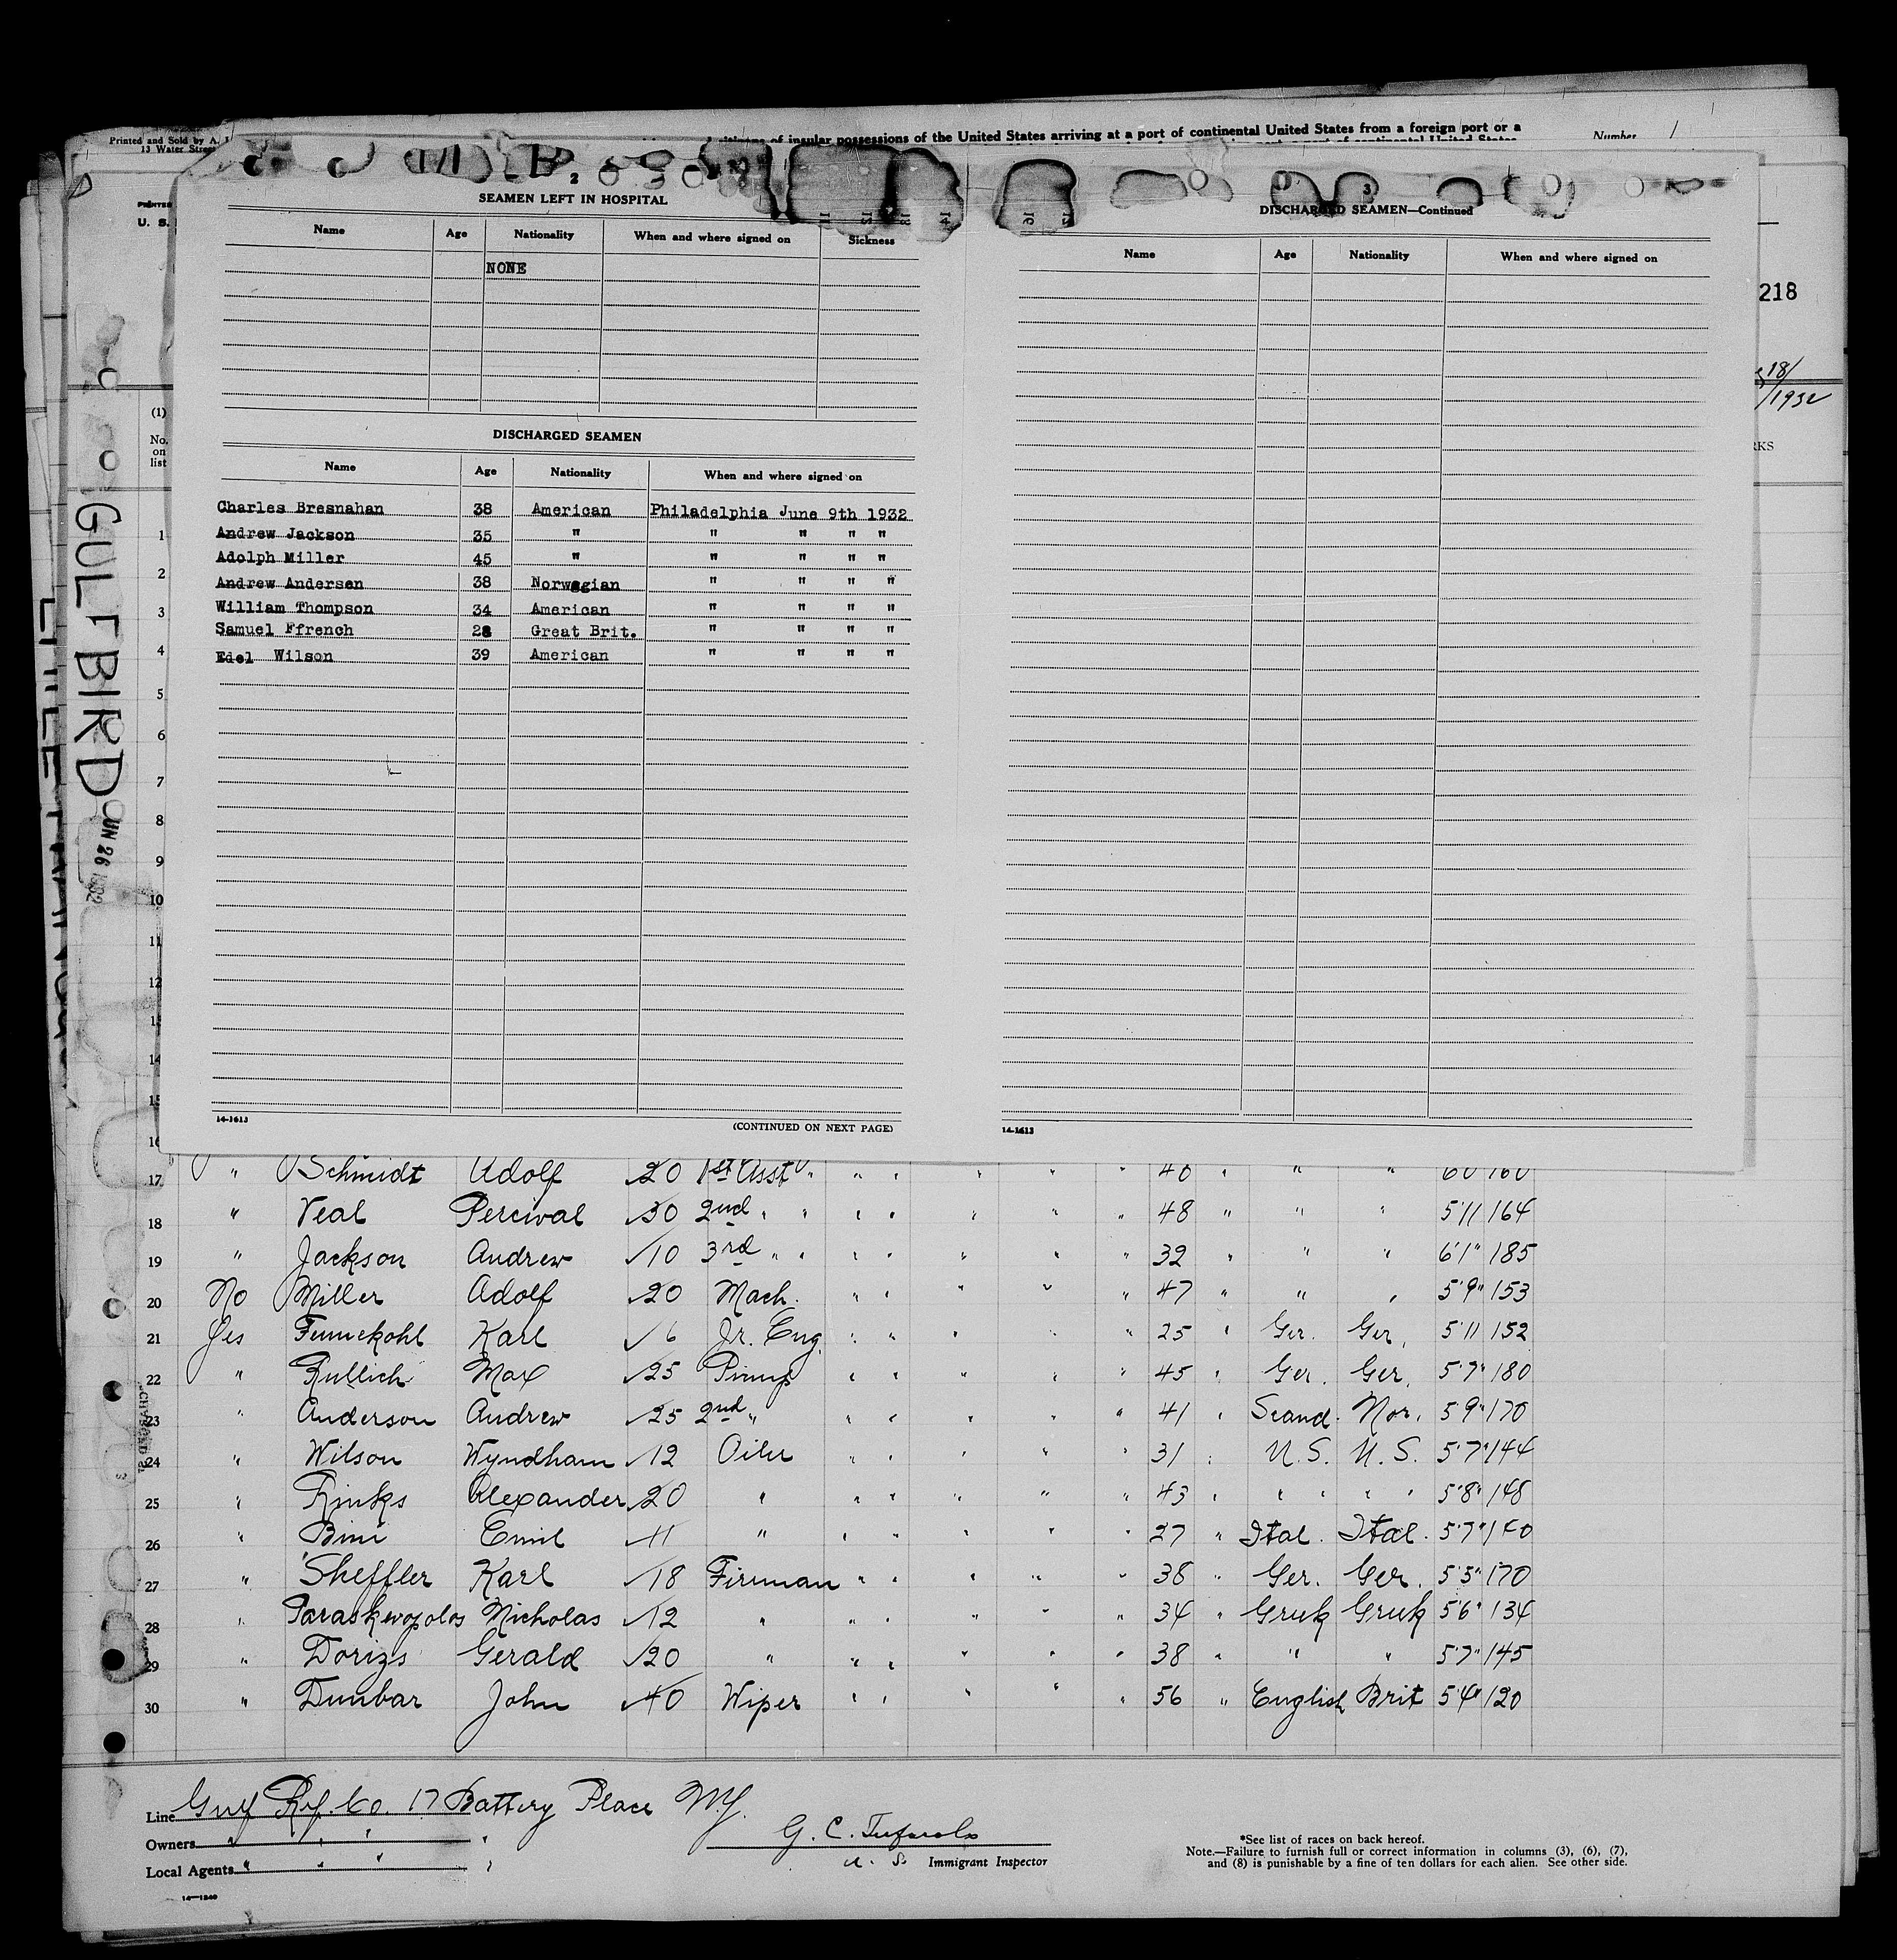 Printed and Sold by A.
13 Water Stree
of insular possessions of the United States arriving at a port of continental United States from a foreign port or a
Number 1
U. S.
218
18/
1932
RKS
(1)
No.
on
list
GULFBIRD
JUN 26 1932
2
SEAMEN LEFT IN HOSPITAL
Name Age Nationality When and where signed on Sickness
NONE
DISCHARGED SEAMEN
Name Age Nationality When and where signed on
Charles Bresnahan 38 American Philadelphia June 9th 1932
Andrew Jackson 35 " " " " "
Adolph Miller 45 " " " " "
Andrew Andersen 38 Norwegian " " " "
William Thompson 34 American " " " "
Samuel Ffrench 28 Great Brit. " " " "
Edel Wilson 39 American " " " "
14-1613
(CONTINUED ON NEXT PAGE)
3
DISCHARGED SEAMEN—Continued
Name Age Nationality When and where signed on
14-1613
1
2
3
4
5
6
7
8
9
10
11
12
14
15
16
17 " Schmidt Adolf 20 1st Asst " " " " " " 40 " " " 60 160
18 " Veal Percival 30 2nd " " " " " " " 48 " " " 5'11 164
19 " Jackson Andrew 10 3rd " " " " " " " 32 " " " 6'1" 185
20 No Miller Adolf 20 Mach. " " " " " 47 " " " 5'9" 153
21 Yes Karl 6 Jr. Eng. " " " " 25 " Ger. Ger. 5'11 152
22 " Rullich Max 25 Pump " " " " " 45 " Ger. Ger. 5'7" 180
23 " Anderson Andrew 25 2nd " " " " " " 41 " Scand. Nor. 5'9" 170
24 " Wilson Wyndham 12 Oiler " " " " " 31 " U.S. U.S. 5'7" 144
25 " Rinks Alexander 20 " " " " " " 43 " " " " " 5'8" 148
26 " Bini Emil 11 " " " " " " 27 " Ital. Ital. 5'7" 140
27 " Sheffler Karl 18 Fireman " " " " " 38 " Ger. Ger. 5'5" 170
28 " Paraskevopolos Nicholas 12 " " " " " " 34 " Greek Greek 5'6" 134
29 " Dorizs Gerald 20 " " " " " " 38 " " " 5'7" 145
30 " Dunbar John 40 Wiper " " " " " 56 " English Brit 5'4" 120
Line Gulf Rf. Co. 17 Battery Place N.Y.
Owners " " " " "
Local Agents " " " "
G. C.
U. S. Immigrant Inspector
*See list of races on back hereof.
Note.—Failure to furnish full or correct information in columns (3), (6), (7),
and (8) is punishable by a fine of ten dollars for each alien. See other side.
14—1240